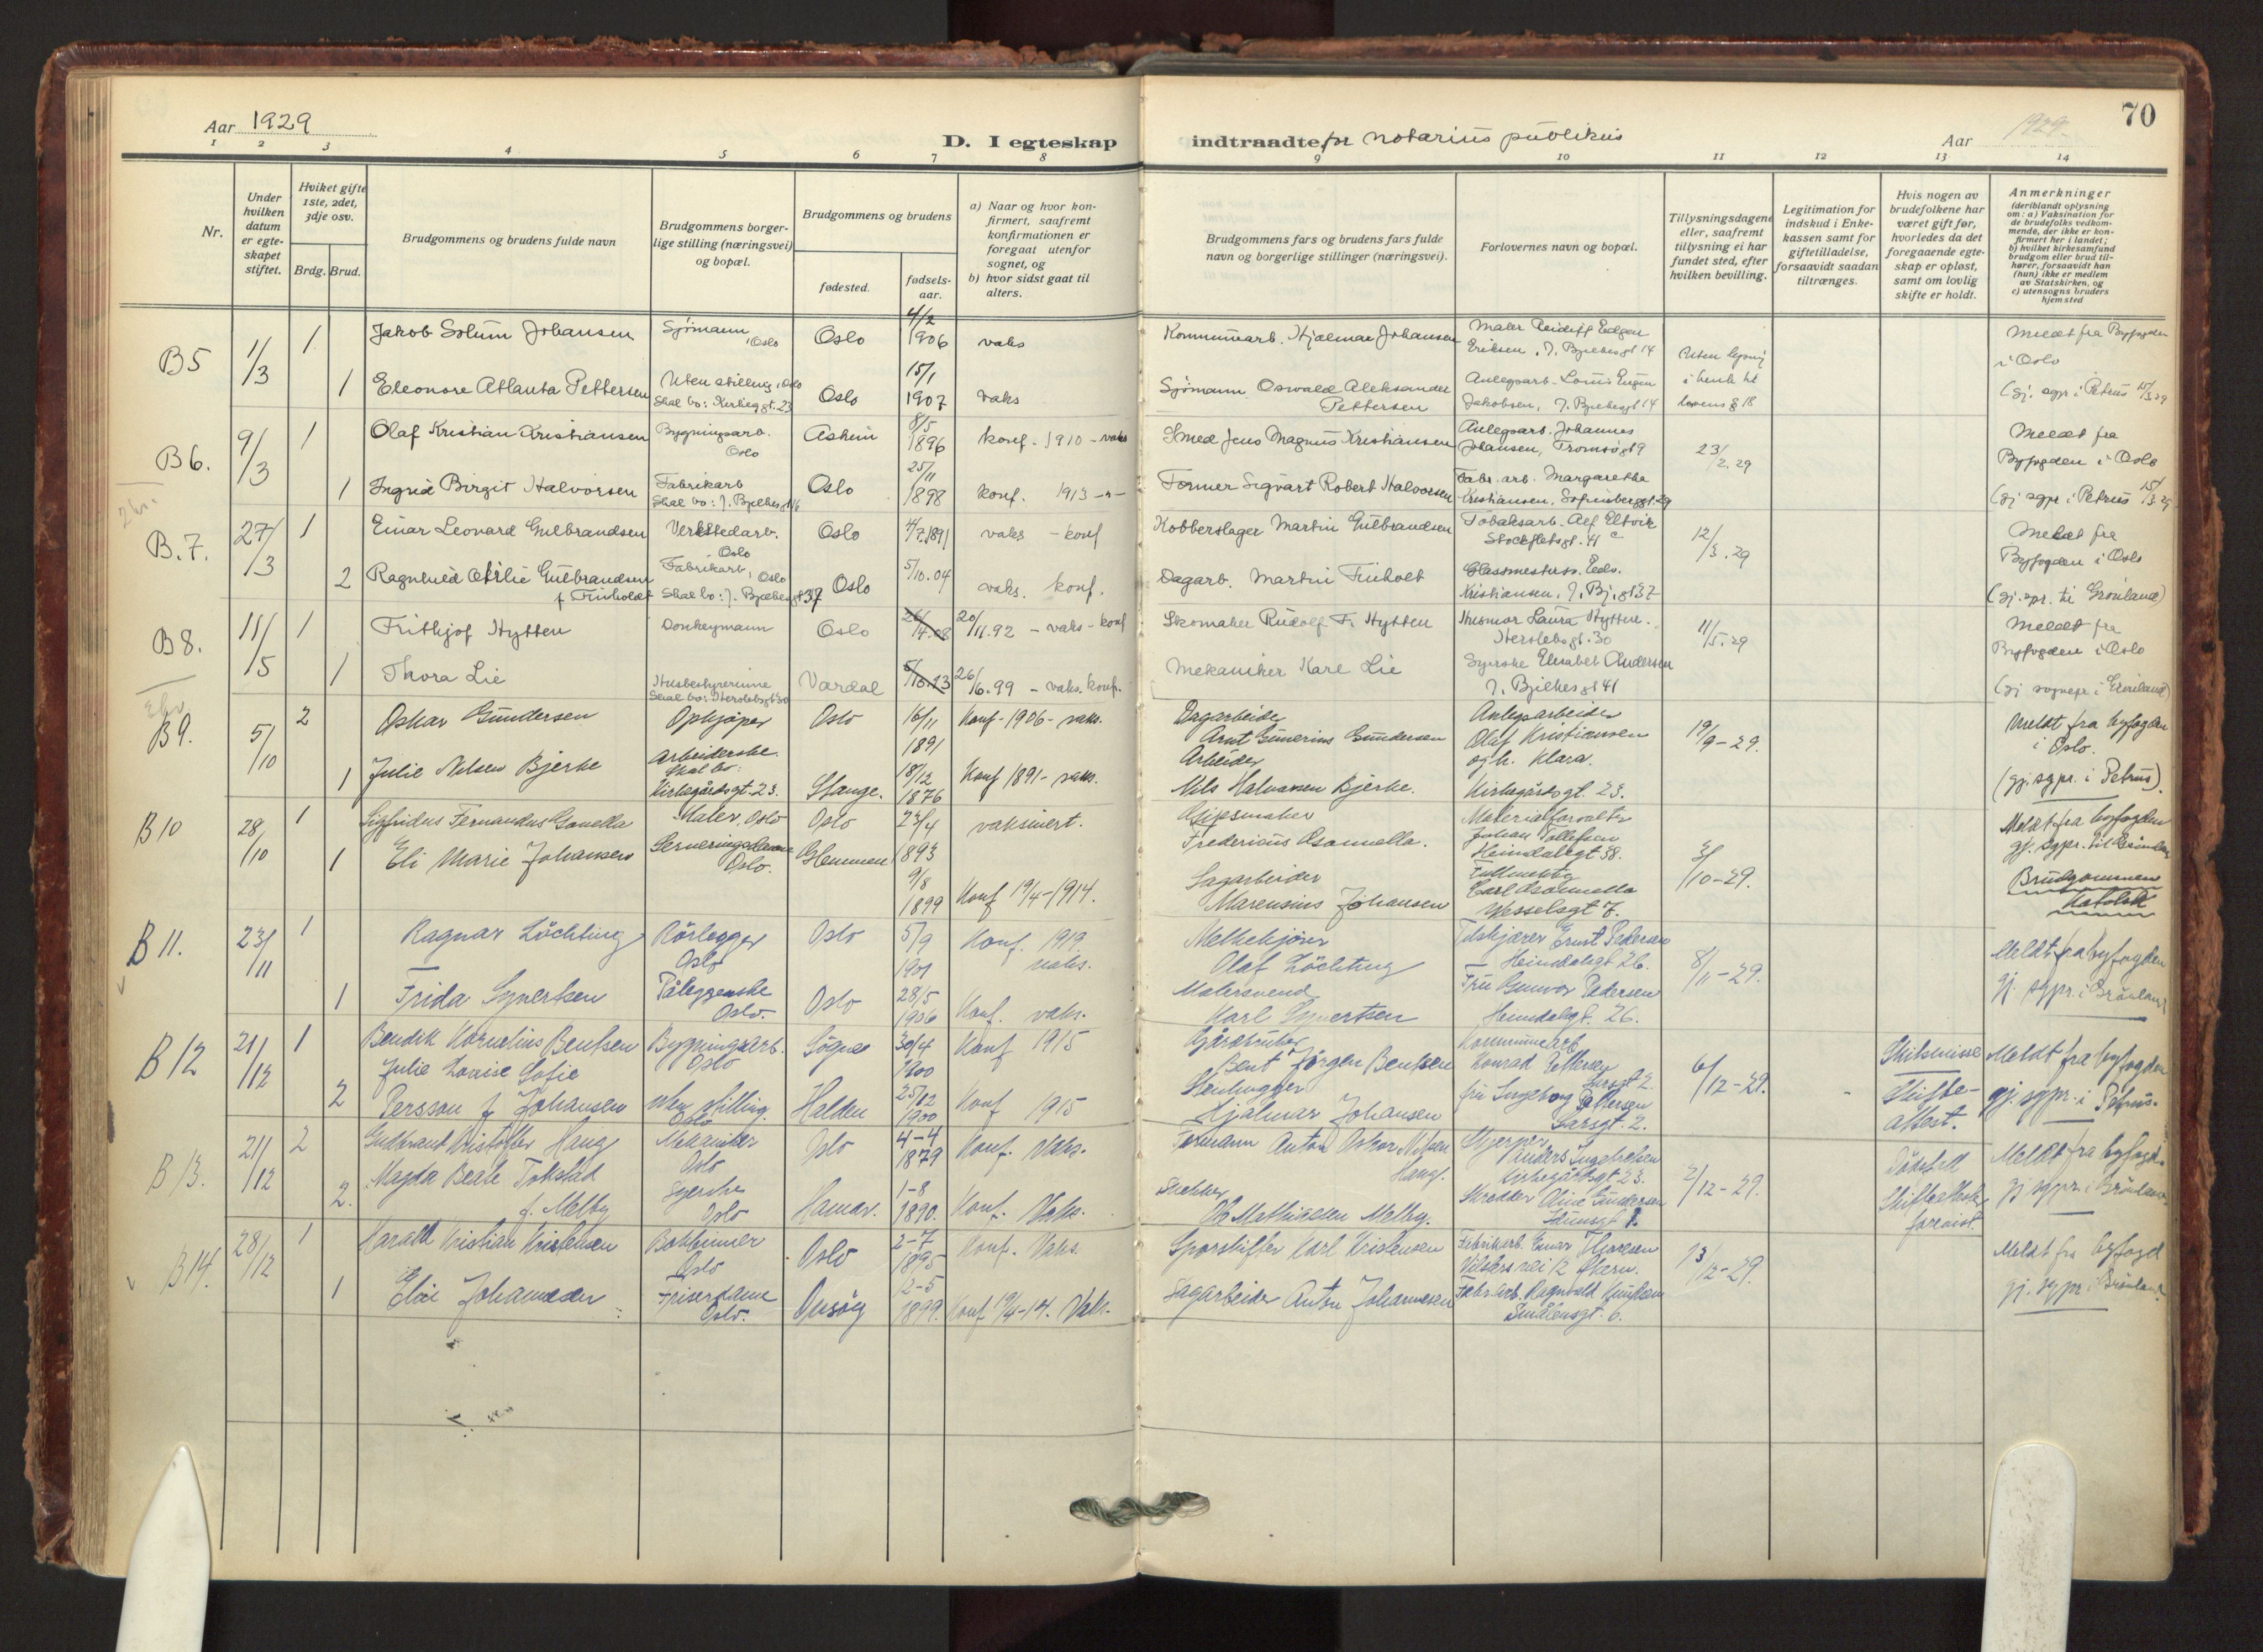 70
Aar 1929
D. I egteskap indtraadte for notarius publikus
Aar 1929.
1 2 3 4 5 6 7 8 9 10 11 12 13 14
Nr.
Under hvilken datum er egte-skapet stiftet.
Hviket gifte 1ste, 2det, 3dje osv.
Brdg. Brud.
Brudgommens og brudens fulde navn
Brudgommens borger-lige stilling (næringsvei) og bopæl.
Brudgommens og brudens
fødested.
fødsels-aar.
a) Naar og hvor kon-firmert, saafremt konfirmationen er foregaat utenfor sognet, og
b) hvor sidst gaat til alters.
Brudgommens fars og brudens fars fulde navn og borgerlige stillinger (næringsvei).
Forlovernes navn og bopæl.
Tillysningsdagene eller, saafremt tillysning ei har fundet sted, efter hvilken bevilling.
Legitimation for indskud i Enke-kassen samt for giftetilladelse, forsaavidt saadan tiltrænges.
Hvis nogen av brudefolkene har været gift før, hvorledes da det foregaaende egte-skap er opløst, samt om lovlig skifte er holdt.
Anmerkninger
(deriblandt oplysning om: a) Vaksination for de brudefolks vedkom-mende, der ikke er kon-firmert her i landet; b) hvilket kirkesamfund brudgom eller brud til-hører, forsaavidt han (hun) ikke er medlem av Statskirken, og c) utensogns bruders hjemsted
B5 1/3 1 Jakob Solum Johansen Sjømann, Oslo Oslo 4/2 1906 vaks Kommunearb. Hjalmar Johansen Maler Eriksen, J. Bjelkesgt 14 Uten lysning i henh. til lovens § 18 Meldt fra Byfogden i Oslo
1 Eleonore Atlanta Pettersen Uten stilling, Oslo Skal bo: gt. 23 Oslo 15/1 1907 vaks Sjømann Oswald Aleksander Pettersen Anlegsarb. Louis Eugen Jakobsen, J. Bjelkesgt 14 (gj. sgpr i Petrus 15/3 29
B6. 9/3 1 Olaf Kristian Kristiansen Bygningsarb. Oslo Askim 8/5 1896 konf. 1910 - vaks Smed Jens Magnus Kristiansen Anlegsarb. Johannes Johansen, Tromsøgt 9 23/2.29 Meldt fra Byfogden i Oslo
1 Ingrid Birgit Halvorsen Fabrikarb Skal bo: J. Bjelkesgt 16 Oslo 25/11 1898 konf. 1913 -"- Former Sigvart Robert Halvorsen Fabr. arb. Margarethe Kristiansen, Sofienberggt. 29 (gj sgpr i Petrus 15/3 29
B.7. 27/3 1 Einar Leonard Gulbrandsen Verkstedarb. Oslo Oslo 4/7.1891 vaks - konf Kobberslager Martin Gulbrandsen Tobaksarb. Alf Eltvik Stockfletsgt. 41 c 12/3.29 Meldt fra Byfogden i Oslo
2 Ragnhild Otilie Gulbrandsen f. Friholdt Fabrikarb, Oslo Skal bo: J. Bjelkesgt 37 Oslo 5/10.04 vaks. konf. Dagarb. Martin Friholt Glassmester Edv. Kristiansen, J. Bj.gt 37 (gj. spr. til Grønland)
B8. 11/5 1 Frithjof Hytten Donkeymann Oslo 20/11.92 - vaks - konf Skomaker Rudolf F. Hytten Husmor Laura Hytten. Herslebsgt. 30 11/5.29 Meldt fra Byfogden i Oslo
1 Thora Lie Husbestyrerinne Skal bo: Herslebsgt 30 Vardal 26/6.99 - vaks. konf. Mekaniker Karl Lie Syerske Elisabet Andersen J. Bjelkesgt 41 (gj sognepr i Grønland)
B9. 5/10 2 Oskar Gundersen Opkjøper Oslo 16/11 1891 Konf - 1906 - vaks. Dagarbeider Arnt Gunerius Gundersen Anlegsarbeider Olaf Kristiansen og h. Klara. 19/9-29. Meldt fra byfogden i Oslo.
1 Julie Nilsen Bjerke Arbeiderske. Skal bo: Kirkegårdsgt. 23. Stange. 18/12 1876 Konf 1891 - vaks. Arbeider Nils Halvorsen Bjerke. Kirkegårdsgt. 23. (gj. sgpr. i Petrus).
B10 28/10 1 Sigfridus Fernandus Maler, Oslo Oslo 23/4 1893 vaksinert. Gipsmaker Fredericus Materialforvalter Johan Tollefsen Heimdalsgt 38. 3/10-29. Meldt fra byfogden gj. sgpr. til Grønland
1 Eli Marie Johansen Serveringsdame Oslo. Glemmen 9/8 1899 Konf 19/4-1914. Sagarbeider Marensius Johansen Carl Wesselsgt 7. Brudgommen Katolik
B11. 23/11 1 Ragnar Löchting Rörlegger Oslo Oslo 5/9 1901 Konf. 1919. vaks. Melkekjører Olaf Löchting Ernst Pedersen Heimdalsgt 26. 8/11-29. Meldt fra byfogden
1 Frida Syvertsen Påleggerske Oslo. Oslo 28/5 1906 Konf. vaks. Malersvend Karl Syvertsen Fru Gunvor Pedersen Heimdalsgt. 26. gj. sgpr. i Grönland
B12 21/12 1 Bendik Kornelius Bentsen Bygningsarb. Oslo Søgne 30/4 1900 Konf 1915 Gårdbruker Bent Jørgen Bentsen Kommunearb Konrad Pettersen Sarsgt 2. 6/12-29. Skilsmisse Meldt fra byfogden
2 Julie Lovise Sofie Persson f. Johansen uten stilling. Oslo Halden 25/12 1900 Konf 1915 Stenhugger Hjalmar Johansen fru Ingeborg Pettersen Sarsgt. 2. Skifte-attest. gj. sgpr. i Petrus.
B13. 21/12 2 Gulbrand Kristoffer Haug Mekaniker Oslo Oslo 4-4 1879 Konf. Vaks. Formann Anton Oskar Nilsen Haug. Anders Ingebretsen Kirkegårdsgt 23. 2/12-29. Dödsfall Meldt fra byfogd.
2. Magda Beate Tokstad f. Melby Syerske Oslo Hamar. 1-8 1890. Konf. Vaks. Snekker Ole Mathiassen Melby. Skredder Gundersen Skifteattest forevist. gj sgpr. i Grönland
B14. 28/12 1 Harald Kristian Kristensen Bokbinner Oslo Oslo 2-7 1895 Konf. Vaks. Sporskifter Karl Kristensen Fabrikarb. Einar Thoresen 13/12-29. Meldt fra byfogd
1 Johannesen Friserdame Oslo. Onsøy 12-5 1899. Konf 19/4-14. Vaks. Sagarbeider Anton Johannesen Fabr. arb. Ragnvald Knutsen Smålensgt. 6. gj. sgpr. i Grönland.